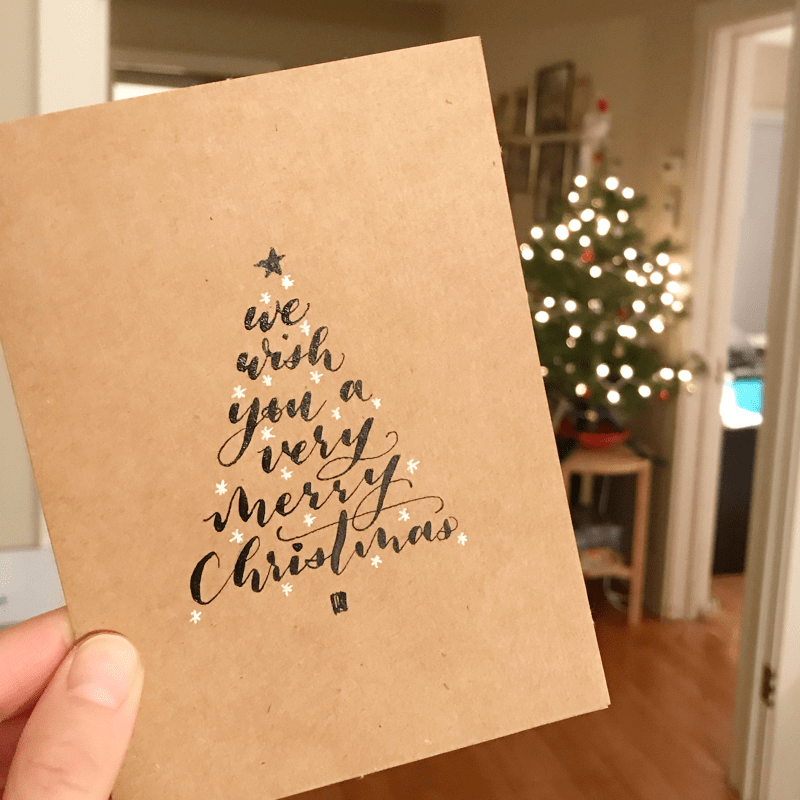 we
wish
you a
very
merry
Christmas